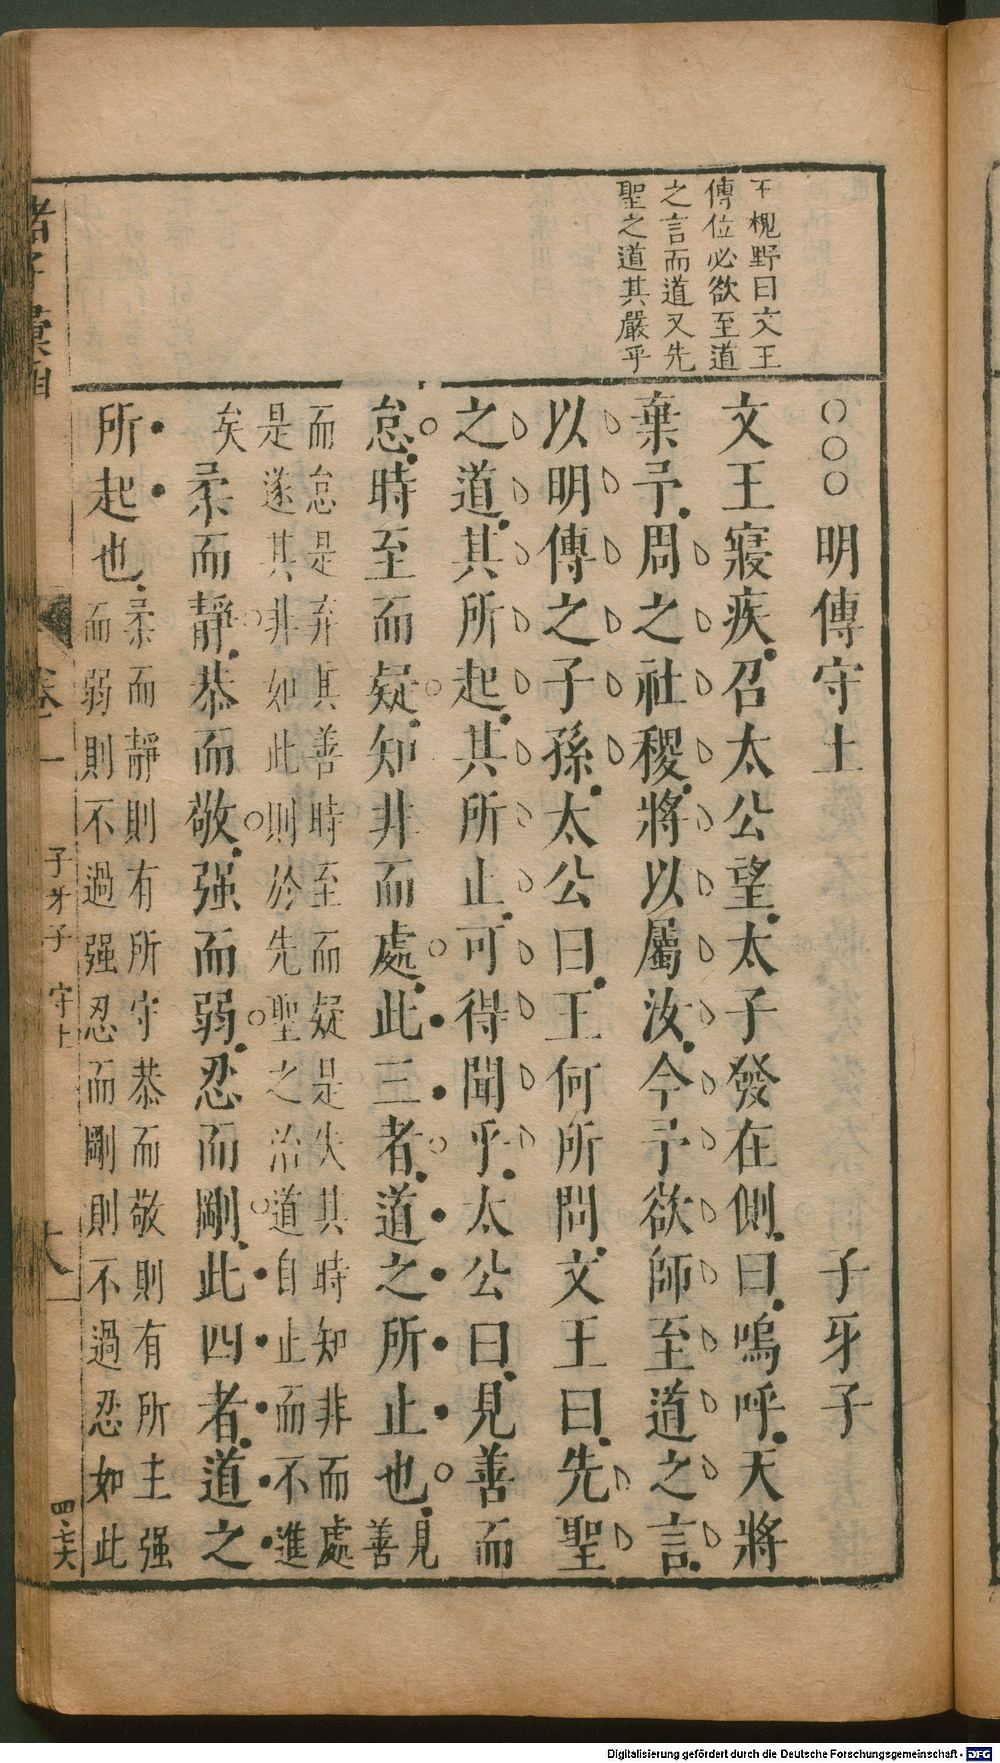 王槐野曰文王
傳位必欲至道
之言而道又先
聖之道其嚴乎
○○○明傳守土 子牙子
文王寢疾召太公望太子發在側曰嗚呼天將
棄予周之社稷將以屬汝今予欲師至道之言
以明傳之子孫太公曰王何所問文王曰先聖
之道其所起其所止可得聞乎太公曰見善而
怠時至而疑知非而處此三者道之所止也見善
而怠是弃其善時至而疑是失其時知非而處
是遂其非如此則於先聖之治道自止而不進
矣
柔而靜恭而敬强而弱忍而剛此四者道之
所起也柔而靜則有所守恭而敬則有所主强
而弱則不過强忍而剛則不過忍如此
諸子彙函
卷一
子牙子 守土
四七六
Digitalisierung gefördert durch die Deutsche Forschungsgemeinschaft - DFG